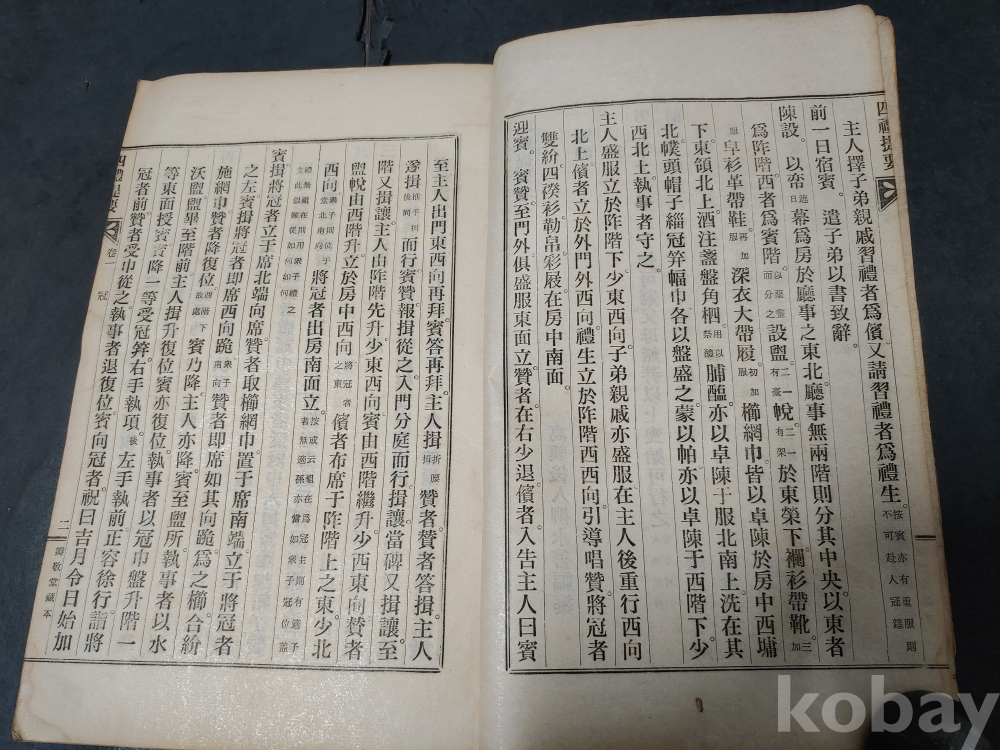 四禮提要
主人擇子弟親戚習禮者爲儐又請習禮者爲禮生按賓亦有重服則不可赴人冠筵
前一日宿賓 遣子弟以書致辭
陳設 以帟連日幕爲房於廳事之東北廳事無兩階則分其中央以東者
爲阼階西者爲賓階以堊畫而分之設盥二一有臺帨二一有架於東榮下襴衫帶靴三加
服皁衫革帶鞋再加服深衣大帶履初加服櫛網巾皆以卓陳於房中西墉
下東領北上酒注盞盤角柶用以祭醴脯醢亦以卓陳于服北南上洗在其
北幞頭帽子緇冠笄幅巾各以盤盛之蒙以帕亦以卓陳于西階下少
西北上執事者守之
主人盛服立於阼階下少東西向子弟親戚亦盛服在主人後重行西向
北上儐者立於外門外西向禮生立於阼階西西向引導唱贊將冠者
雙紒四䙆衫勒帛彩屐在房中南面
迎賓 賓贊至門外俱盛服東面立贊者在右少退儐者入告主人曰賓
至主人出門東西向再拜賓答再拜主人揖折腰揖贊者贊者答揖主人
遂揖推手揖後同而行賓贊報揖從之入門分庭而行揖讓當碑又揖讓至
階又揖讓主人由阼階先升少東西向賓由西階繼升少西東向贊者
盥帨由西階升立於房中西向將冠者之東儐者布席于阼階上之東少北
西向衆子則位于堂北南向將冠者出房南面立
賓揖將冠者立于席北端向席贊者取櫛網巾置于席南端立于將冠者
之左賓揖將冠者即席西向跪衆子南向贊者即席如其向跪爲之櫛合紒
施網巾贊者降復位西階下故處賓乃降主人亦降賓至盥所執事者以水
沃盥盥畢至階前主人揖升復位賓亦復位執事者以冠巾盤升階一
等東面授賓賓降一等受冠笄右手執項後左手執前正容徐行詣將
冠者前贊者受巾從之執事者退復位賓向冠者祝曰吉月令日始加
四禮提要
卷一
冠
二
kobay